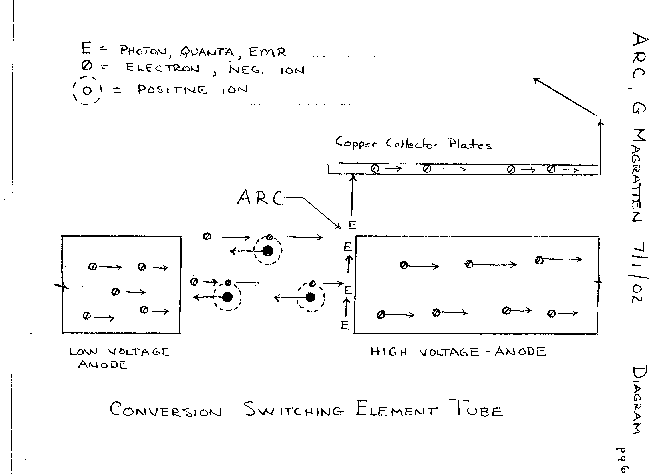 E = PHOTON, QUANTA, EMR
Ø = ELECTRON, NEG. ION
= POSITIVE ION
Copper Collector Plates
ARC
E
E
E
E
LOW VOLTAGE
ANODE
HIGH VOLTAGE - ANODE
CONVERSION SWITCHING ELEMENT TUBE
ARC, G MAGRATTEN 7/1/02 DIAGRAM
pg6